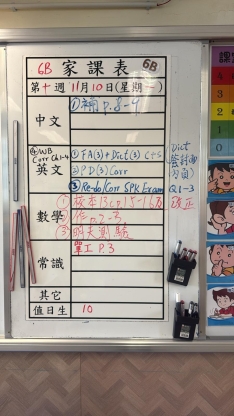 6B 家課表 6B
第十週 11月10日(星期一)
中文
① 補 p.8-9
④ WB Corr Ch.1-4
英文
① FA(3) + Dict(3) C+S
② P.D(3) Corr
③ Re-do/Corr SPK Exam
Dict
簽封面
內頁
Q1-3
改正
數學
① 校本13C p.15-16及
作 p.2-3
③ 明天測驗
常識
單工 P.3
其它
值日生
10